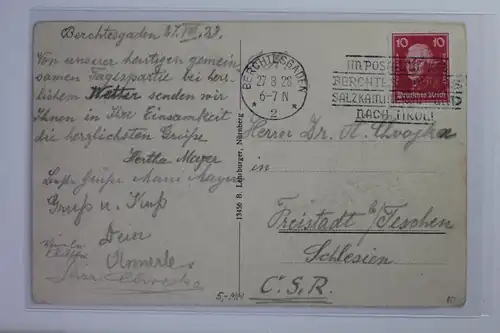 Berchtesgaden 27.VIII.28.
Von unserer heutigen gemein-
samen Tagespartie bei herr-
lichem Wetter senden wir
Ihnen in Ihre Einsamkeit
die herzlichsten Grüße
Hertha Mayer
Beste Grüße Mayer
Gruß u. Kuß
Dein
13456 B. Lehrburger, Nürnberg
BERCHTESGADEN
27 8 28
6-7 N
* 2 *
IM POSTAUTO
BERCHTESGADEN
SALZKAMMERGUT
NACH TIROL!
10 10
Deutsches Reich
Herrn Dr. A.
Freistadt b/Teschen
Schlesien
C.S.R.
5,-